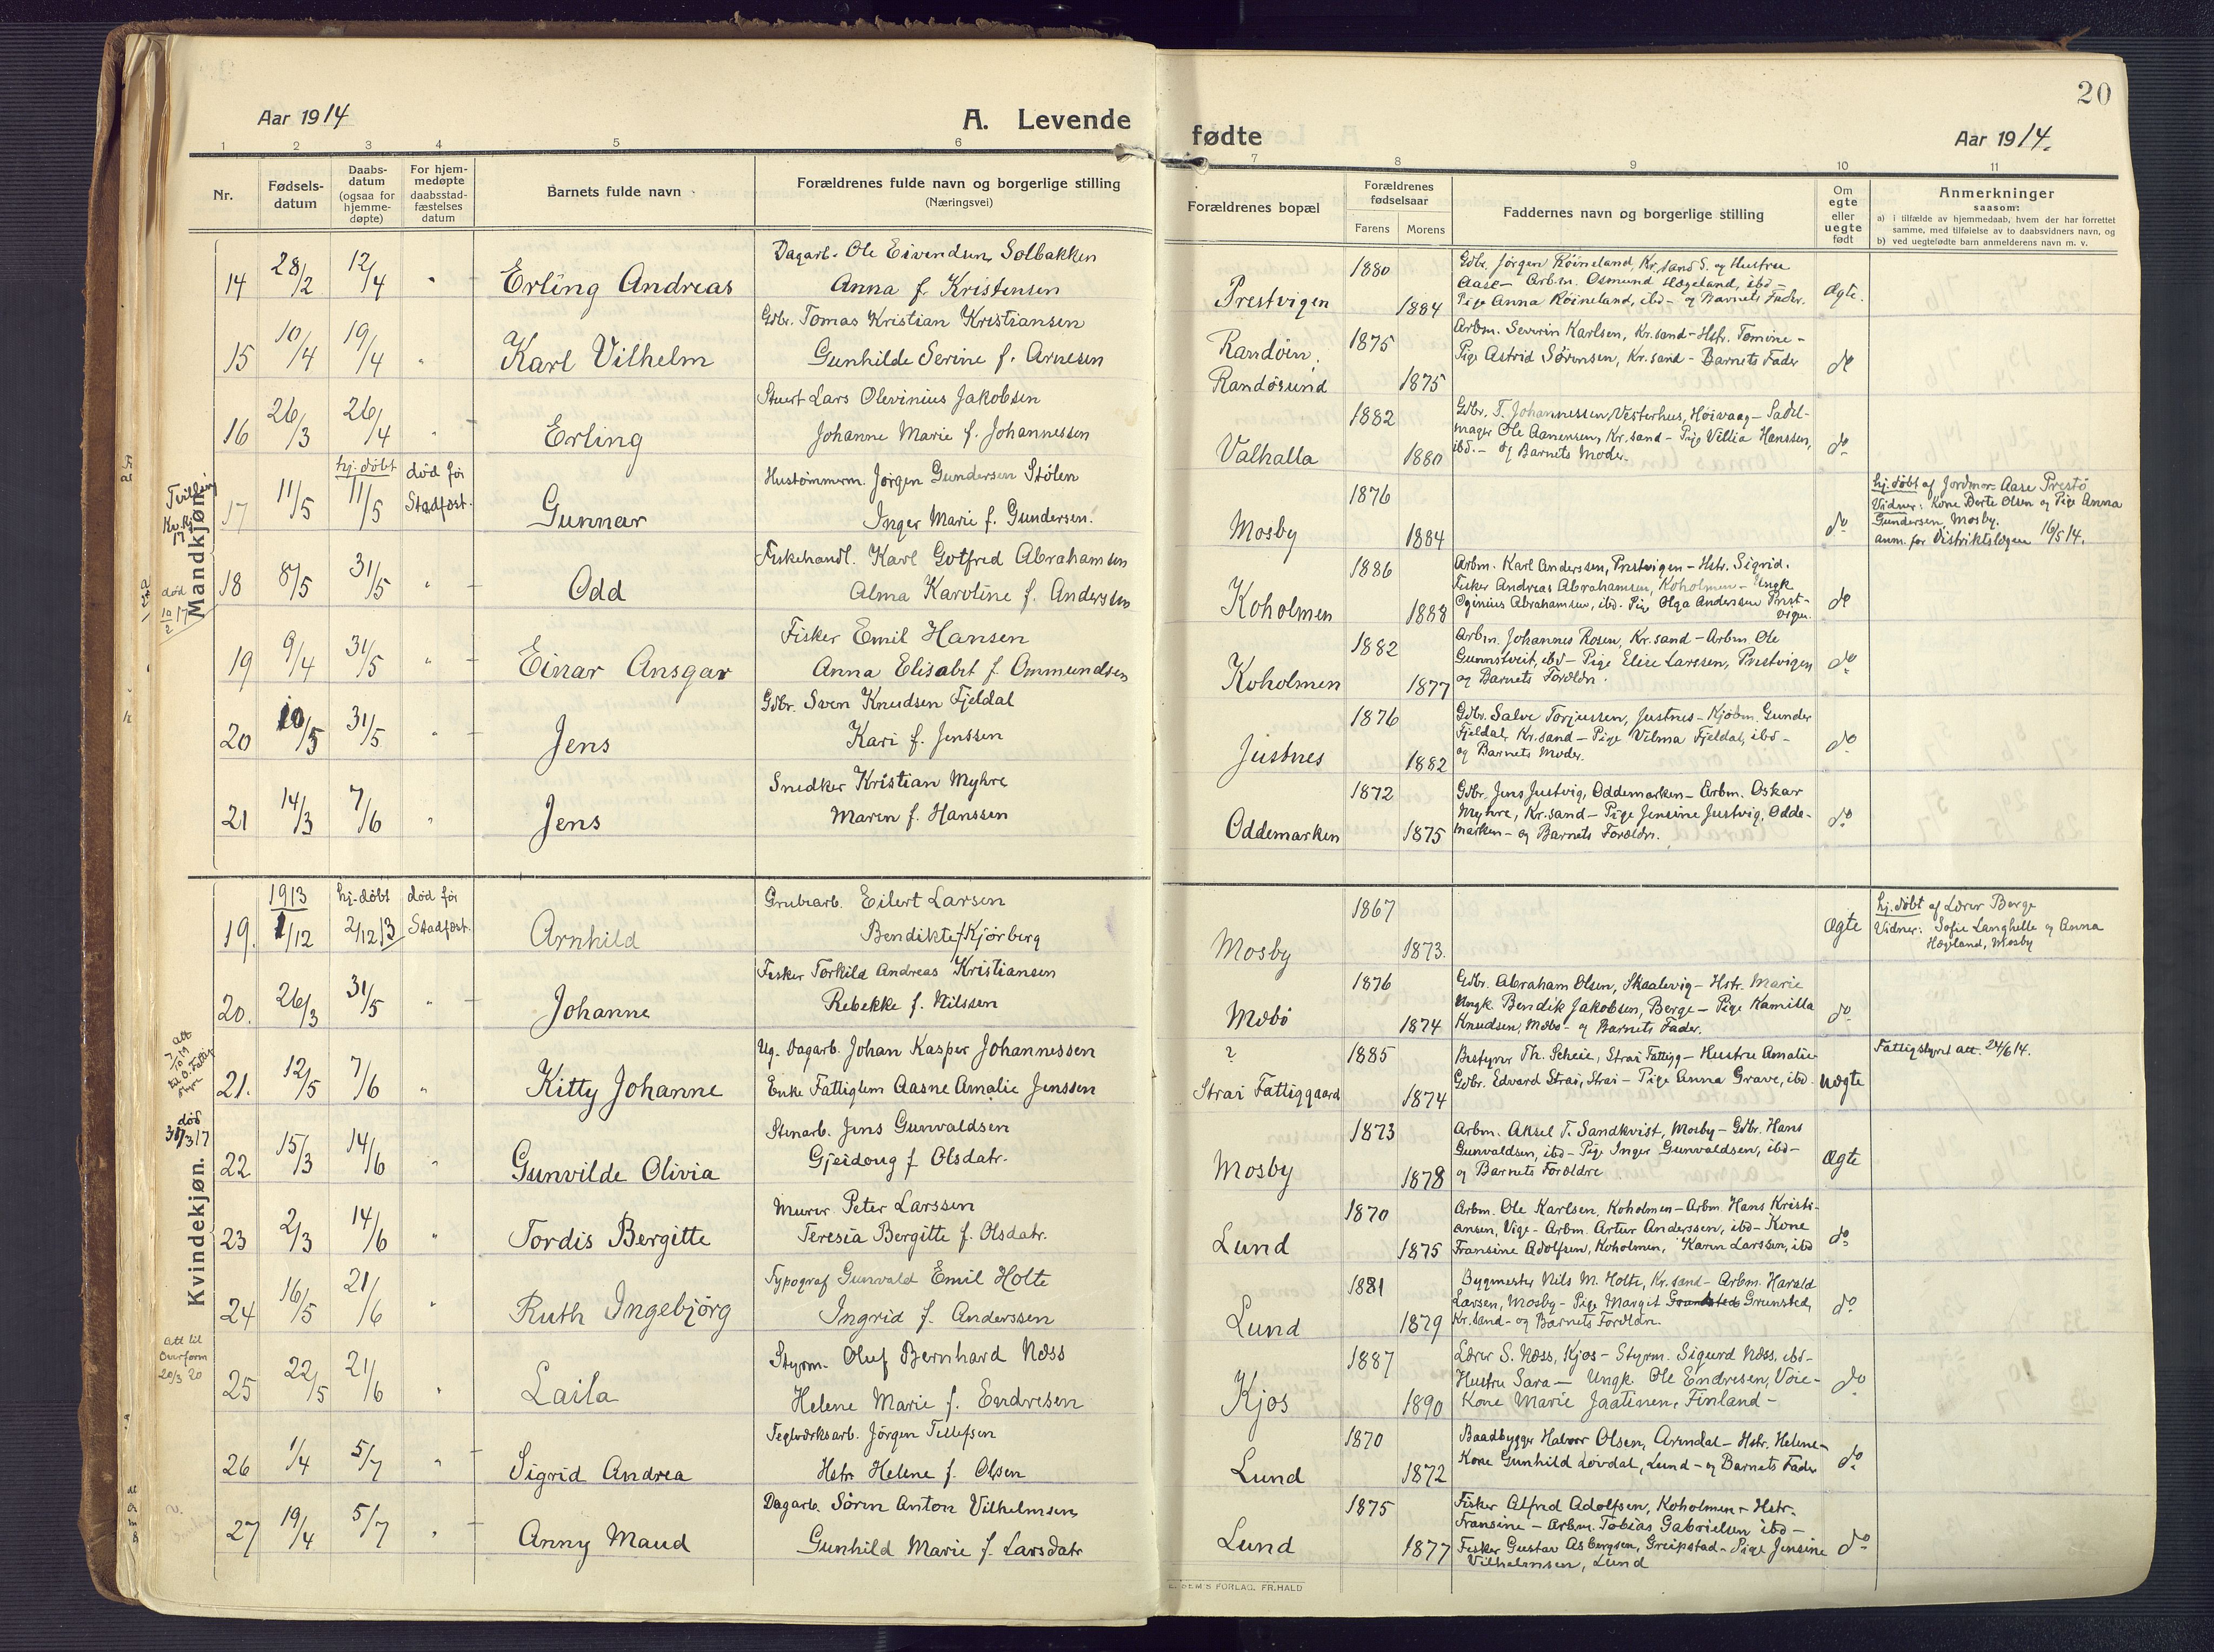 20
Aar 1914
A. Levende
fødte
Aar 1914.
1 2 3 4 5 6
7 8 9 10 11
Nr.
Fødsels-
datum
Daabs-
datum
(ogsaa for
hjemme-
døpte)
For hjem-
medøpte
daabsstad-
fæstelses
datum
Barnets fulde navn
Forældrenes fulde navn og borgerlige stilling
(Næringsvei)
Forældrenes bopæl
Forældrenes
fødselsaar
Farens Morens
Faddernes navn og borgerlige stilling
Om
egte
eller
uegte
født
Anmerkninger
saasom:
a) i tilfælde av hjemmedaab, hvem der har forrettet
samme, med tilføielse av to daabsvidners navn, og
b) ved uegtefødte barn anmelderens navn m. v.
Mandkjøn.
14 28/2 12/4 " Erling Andreas
Dagarb. Ole Eivendsen Solbakken
Anna f. Kristensen
Prestvigen 1880 1884
Gdbr. Jørgen Røineland, Kr.sand S. og Hustru
Aase - Arbm. Osmund Hægeland, ibd -
Pige Anna Røineland, ibd - og Barnets Fader.
Ægte.
15 10/4 19/4 " Karl Vilhelm
Gdbr. Tomas Kristian Kristiansen
Gunhilde Serine f. Arnesen
Randøen.
Randøsund 1875 1875
Arbm. Severin Karlsen, Kr.sand - Hstr. Tomine -
Pige Astrid Sørensen, Kr.sand - Barnets Fader
do
16 26/3 26/4 " Erling
Stuert Lars Olevinius Jakobsen
Johanne Marie f. Johannessen
Valhalla 1882 1880
Gdbr. T. Johannessen, Vesterhus, Høivaag - Sadel-
mager Ole Aanensen, Kr.sand - Pige Villia Hanssen,
ibd. - og Barnets Moder.
do
Tvilling
Kv.kj.
17
17 11/5 hj. døbt 11/5 død før Stadfæst. Gunnar
Hustømmerm. Jørgen Gundersen Stølen
Inger Marie f. Gundersen.
Mosby 1876 1884
do
hj. døbt af Jordmor Aase Prestø
Vidner: Kone Dorte Olsen og Pige Anna
Gundersen, Mosby.
anm. for Distriktslægen 16/5 14.
død
10/2 17
18 8/5 31/5 " Odd
Fiskehandl. Karl Gotfred Abrahamsen
Alma Karoline f. Anderssen
Koholmen 1886 1888
Arbm. Karl Anderssen, Prestvigen - Hstr. Sigrid.
Fisker Andreas Abrahamsen, Koholmen - Ungk
Oginius Abrahamsen, ibd. Pige Olga Andersen Prest-
vigen.
do
19 9/4 31/5 " Einar Ansgar
Fisker Emil Hansen
Anna Elisabet f. Ommundsen
Koholmen 1882 1877
Arbm. Johannes Rosen, Kr.sand - Arbm. Ole
Gunnstveit, ibd - Pige Elise Larssen, Prestvigen
og Barnets Forældr.
do
20 10/5 31/5 " Jens
Gdbr. Sven Knudsen Fjeldal
Kari f. Jenssen
Justnes 1876 1882
Gdbr. Salve Torjussen, Justnes - Kjøbm. Gunder
Fjeldal, Kr.sand - Pige Vilma Fjeldal, ibd -
og Barnets Moder.
do
21 14/3 7/6 " Jens
Snedker Kristian Myhre
Maren f. Hanssen
Oddemarken 1872 1875
Gdbr. Jens Justvig, Oddemarken - Arbm. Oskar
Myhre, Kr.sand - Pige Jensine Justvig, Odde-
marken - og Barnets Forældr.
do
Kvindekjøn.
19. 1913 1/12 hj. døbt 2/12 13 død før Stadfæst. Arnhild
Grubearb. Eilert Larsen
Bendikte f Kjørberg
Mosby 1867 1873.
Ægte
hj. døbt af Lærer Berge
Vidner: Sofie Langhelle og Anna
Hægland, Mosby
20. 26/3 31/5 " Johanne
Fisker Torkild Andreas Kristiansen
Rebekke f. Nilssen
Mæbø 1876 1874
Gdbr. Abraham Olsen, Skaalevig - Hstr. Marie
Ungk. Bendik Jakobsen, Berge - Pige Kamilla
Knudsen, Mæbø - og Barnets Fader.
do
21. 12/5 7/6 " Kitty Johanne
Ug. Dagarb. Johan Kasper Johannessen
Enke Fattiglem Aasne Amalie Jenssen
?
Strai Fattiggaard 1885 1874
Bestyrer Th. Scheie, Strai Fattigg - Hustru Amalie
Gdbr. Edvard Strai, Strai - Pige Anna Grave, ibd.
uægte
Fattigstyret att. 24/6 14.
død
31/3 17
22 15/3 14/6 " Gunvilde Olivia
Stenarb. Jens Gunvaldsen
Gjeidoug f Olsdatr.
Mosby 1873 1878
Arbm. Aksel T. Sandkvist, Mosby - Gdbr. Hans
Gunvaldsen, ibd - Pige Inger Gunvaldsen, ibd -
og Barnets Forældre
Ægte
23 2/3 14/6 " Tordis Bergitte
Murer Peter Larssen
Teresia Bergitte f. Olsdatr.
Lund 1870 1875
Arbm. Ole Karlsen, Koholmen - Arbm. Hans Kristi-
ansen, Vige - Arbm. Artur Anderssen, ibd - Kone
Fransine Adolfsen, Koholmen, Karen Larssen, ibd
do
24 16/5 21/6 " Ruth Ingebjørg
Typograf Gunvald Emil Holte
Ingrid f. Anderssen
Lund 1881 1879
Bygmester Nils M. Holte, Kr.sand - Arbm. Harald
Larsen, Mosby - Pige Margit Grunsted,
Kr.sand - og Barnets Forældr.
do
Att til
Overform
20/3 20
25 22/5 21/6 " Laila
Styrm. Oluf Bernhard Næss
Helene Marie f. Endresen
Kjos 1887 1890
Lærer S. Næss, Kjos - Styrm. Sigurd Næss, ibd -
Hustru Sara - Ungk. Ole Endresen, Voie -
Kone Marie Jaatinen, Finland -
do
26 1/4 5/7 " Sigrid Andrea
Teglværksarb. Jørgen Tellefsen
Hstr Helene f. Olsen
Lund 1870 1872
Baadbygger Halvor Olsen, Arendal - Hstr. Helene -
Kone Gunhild Løvdal, Lund - og Barnets Fader
do
27 19/4 5/7 " Anny Maud
Dagarb. Søren Anton Vilhelmsen
Gunhild Marie f. Larsdatr
Lund 1875 1877
Fisker Alfred Adolfsen, Koholmen - Hstr.
Fransine - Arbm. Tobias Gabrielsen ibd -
Fisker Gustav Asbergsen, Greipstad - Pige Jensine
Vilhelmsen, Lund
do
SEM'S FORLAG. FR.HALD